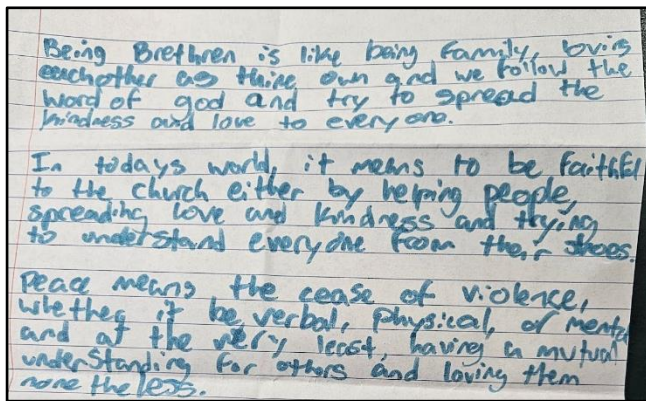 Being Brethren is like being family, loving
eachother as thine own and we follow the
word of god and try to spread the
kindness and love to everyone.
In todays world, it means to be faithful
to the church either by helping people,
spreading love and kindness and trying
to understand everyone from their shoes.
Peace means the cease of violence,
whether it be verbal, physical, or mental
and at the very least, having a mutual
understanding for others and loving them
none the less.